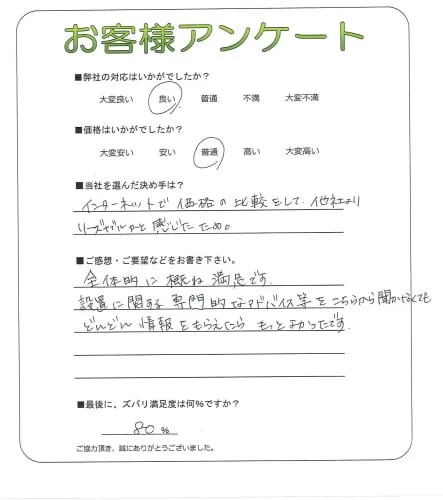 お客様アンケート
■弊社の対応はいかがでしたか?
大変良い 良い 普通 不満 大変不満
■価格はいかがでしたか?
大変安い 安い 普通 高い 大変高い
■当社を選んだ決め手は?
インターネットで価格の比較をして、他社より
リーズナブルかと感じたため。
■ご感想・ご要望などをお書き下さい。
全体的に概ね満足です。
設置に関する専門的なアドバイス等をこちらから聞かなくても
どんどん情報をもらえたらもっとよかったです。
■最後に、ズバリ満足度は何%ですか?
80 %
ご協力頂き、誠にありがとうございました。